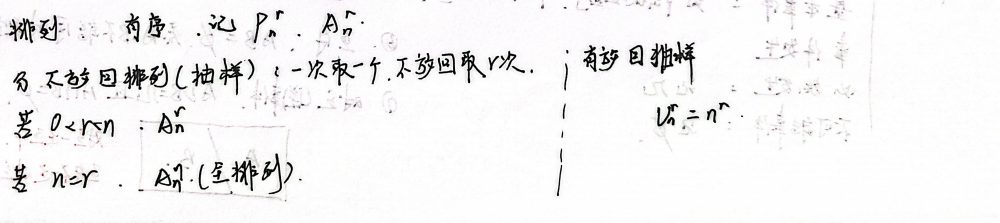 排列 有序 . 记 P_n^r . A_n^r .
分 不放回排列(抽样) : 一次取一个, 不放回取r次. ; 有放回抽样
若 0<r<n : A_n^r
U_n^r = n^r .
若 n=r . A_n^n . (全排列).